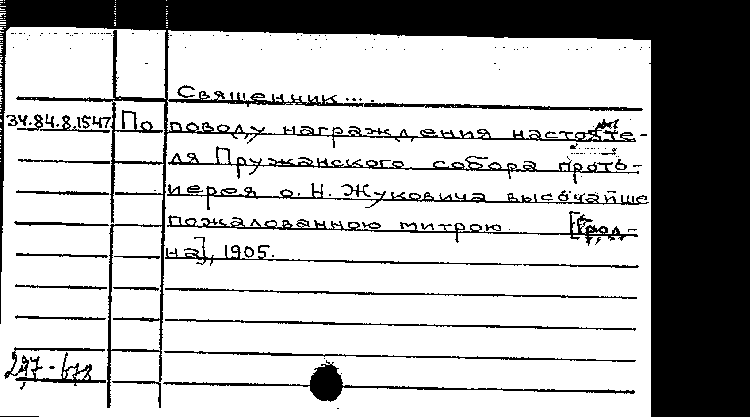 Священник ....
34.84.8.1547 По поводу награждения настояте-
ля Пружанского собора прото-
иерея о. Н. Жуковича высочайше
пожалованною митрою. [Грод-
на], 1905.
297-678